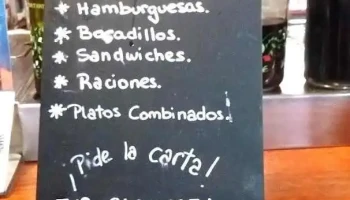 * Hamburguesas.
* Bocadillos.
* Sandwiches.
* Raciones.
* Platos Combinados.
¡Pide la carta!